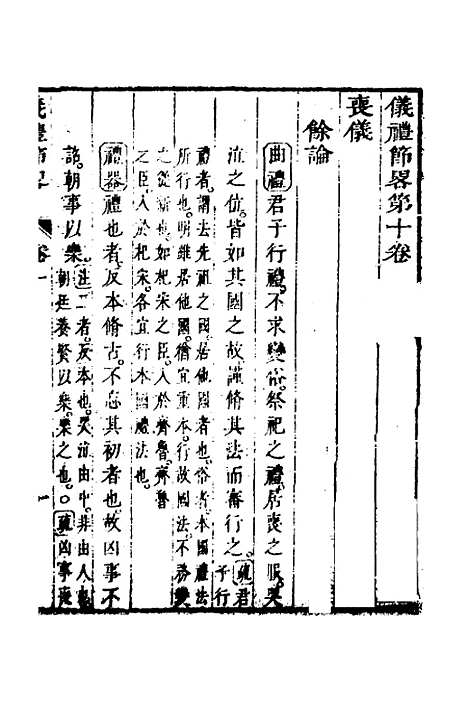 儀禮節畧第十卷
喪儀
餘論
曲禮君子行禮不求變俗祭祀之禮居喪之服哭
泣之位皆如其國之故謹脩其法而審行之疏君
子行
禮者謂去先祖之國居他國者也俗者本國禮法
所行也明雖居他國猶宜重本行故國法不務變
之從新也如杞宋之臣入於齊魯齊魯
之臣入於杞宋各宜行本國禮法也
禮器禮也者反本脩古不忘其初者也故凶事不
詔朝事以樂注二者反本也哭泣由中非由人也
朝廷養賢以樂樂之也○疏凶事喪
儀禮節畧
卷十
一